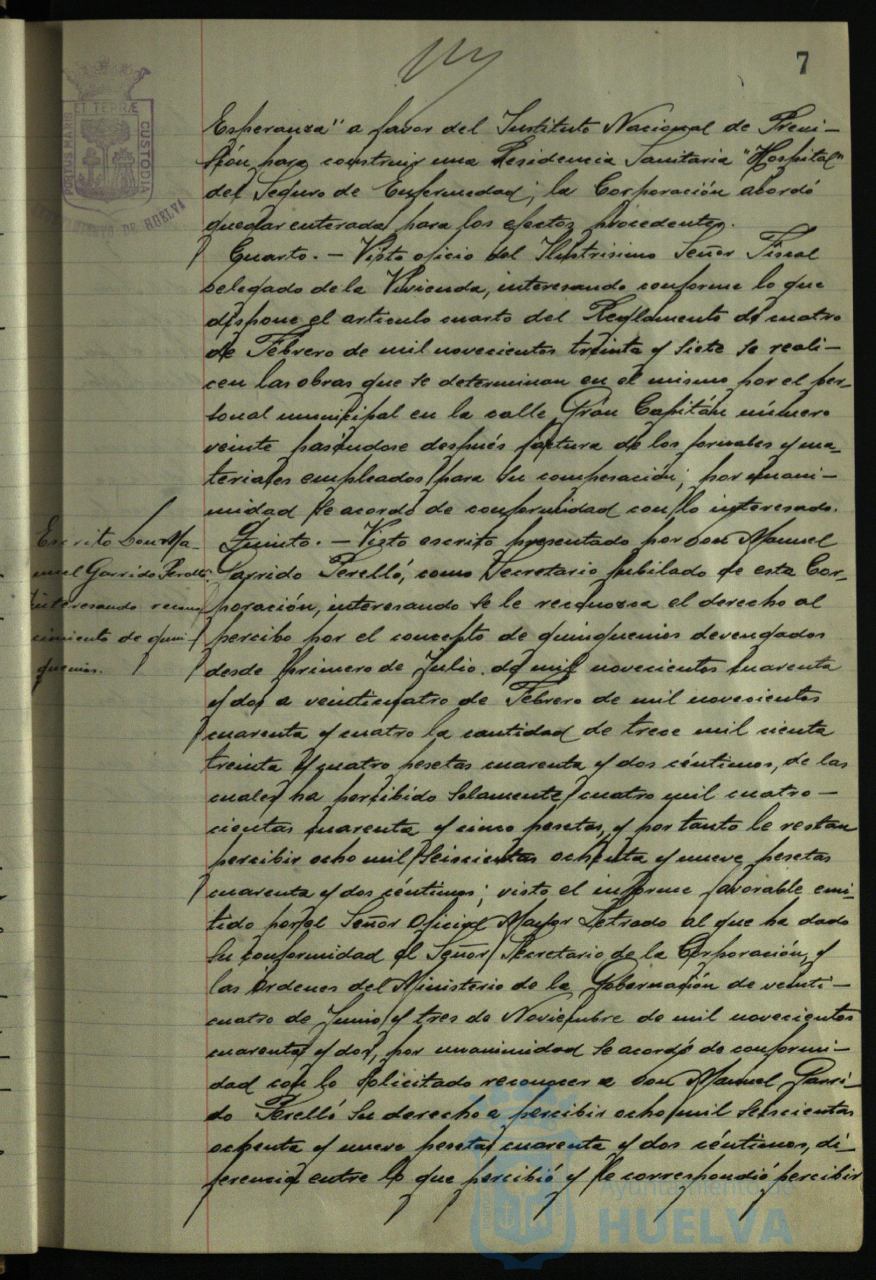 7
PORTUS MARIS ET TERRÆ CUSTODIA
DE HUELVA
Esperanza" a favor del Instituto Nacional de Previ-
sión para construir una Residencia Sanitaria "Hospital"
del Seguro de Enfermedad; la Corporación acordó
quedar enterada para los efectos procedentes.
Cuarto. - Visto oficio del Ilustrisimo Señor Fiscal
delegado de la Vivienda, interesando conforme lo que
dispone el articulo cuarto del Reglamento de cuatro
de Febrero de mil novecientos treinta y siete se reali-
cen las obras que se determinan en el mismo por el per-
sonal municipal en la calle Gran Capitán número
veinte pasándose después factura de los jornales y ma-
teriales empleados para su compensación; por unani-
midad se acordó de conformidad con lo interesado.
Escrito Don Ma-
nuel Garrido Perelló
interesando recono-
cimiento de quin-
quenios.
Quinto. - Visto escrito presentado por don Manuel
Garrido Perelló, como Secretario jubilado de esta Cor-
poración, interesando se le reconozca el derecho al
percibo por el concepto de quinquenios devengados
desde primero de Julio de mil novecientos cuarenta
y dos a veinticuatro de Febrero de mil novecientos
cuarenta y cuatro la cantidad de trece mil ciento
treinta y cuatro pesetas cuarenta y dos céntimos, de las
cuales ha percibido solamente cuatro mil cuatro-
cientas cuarenta y cinco pesetas, y por tanto le restan
percibir ocho mil seiscientas ochenta y nueve pesetas
cuarenta y dos céntimos; visto el informe favorable emi-
tido por el Señor Oficial Mayor Letrado al que ha dado
su conformidad el Señor Secretario de la Corporación, y
las órdenes del Ministerio de la Gobernación de veinti-
cuatro de Junio y tres de Noviembre de mil novecientos
cuarenta y dos, por unanimidad se acordó de conformi-
dad con lo solicitado reconocer a don Manuel Garri-
do Perelló su derecho a percibir ocho mil seiscientas
ochenta y nueve pesetas cuarenta y dos céntimos, di-
ferencia entre lo que percibió y le correspondió percibir
Ayuntamiento de
HUELVA